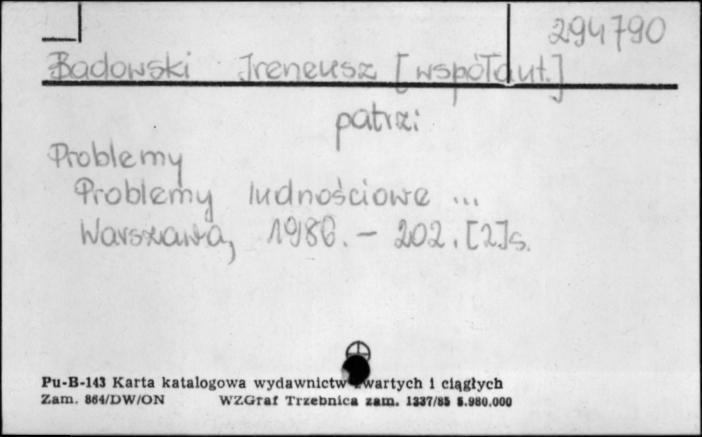 294790
Badowski Ireneusz [współaut.]
patrz:
Problemy
Problemy ludnościowe ...
Warszawa, 1986. - 202. [2]s.
Pu-B-143 Karta katalogowa wydawnictw zwartych i ciągłych
Zam. 864/DW/ON WZGraf Trzebnica zam. 1337/85 5.980.000